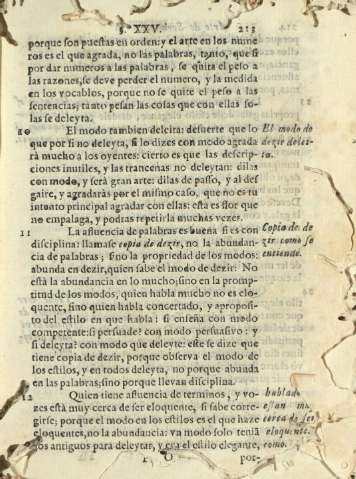 §. XXV. 213
porque son puestas en orden: y el arte en los nume
ros es el que agrada, no las palabras, tanto, que si
por dar numeros a las palabras, se quita el peso a
las razones, se deve perder el numero, y la medida
en los vocablos, porque no se quite el peso a las
sentencias; tanto pesan las cosas que con ellas so-
las se deleyta.
10 El modo tambien deleita: desuerte que lo El modo de
que por si no deleyta, si lo dizes con modo agrada dezir delei-
rà mucho a los oyentes: cierto es que las descrip- ta.
ciones inutiles, y las tranceñas no deleytan: dilas
con modo, y serà gran arte: dilas de passo, y al des
gaire, y agradaràs por el mismo caso, que no es tu
intento principal agradar con ellas: esta es flor que
no empalaga, y podras repetirla muchas vezes.
11 La afluencia de palabras es buena si es con Copia de de
disciplina: llamase copia de dezir, no la abundan- zir como se
cia de palabras; sino la propriedad de los modos: entiende.
abunda en dezir, quien sabe el modo de dezir: No
està la abundancia en lo mucho; sino en la promp-
titud de los modos, quien habla mucho no es elo-
quente, sino quien habla concertado, y aproposi-
to del estilo en que habla: si enseña con modo
competente: si persuade? con modo persuasivo: y
si deleyta? con modo que deleyte: este se dize que
tiene copia de dezir, porque observa el modo de
los estilos, y en todos deleyta, no porque abunda
en las palabras; sino porque llevan disciplina.
12 Quien tiene afluencia de terminos, y vo- hablado
zes està muy cerca de ser eloquente, si sabe corre-
girse; porque el modo en los estilos es el que haze cerca de ser
eloquentes, no la abundancia: vn modo solo tenia eloquente.
los antiguos para deleytar, y era el estilo elegante, como.
O por-